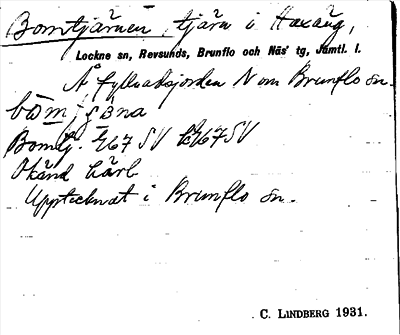 Bomtjärnen, tjärn i Haxäng,
Lockne sn, Revsunds, Brunflo och Näs' tg, Jämtl. l.
Å fyllnadsjorden N om Brunflo sn.
Bomtj. E67 SV E67SV
Okänd härl.
Upptecknat i Brunflo sn.
C. LINDBERG 1931.